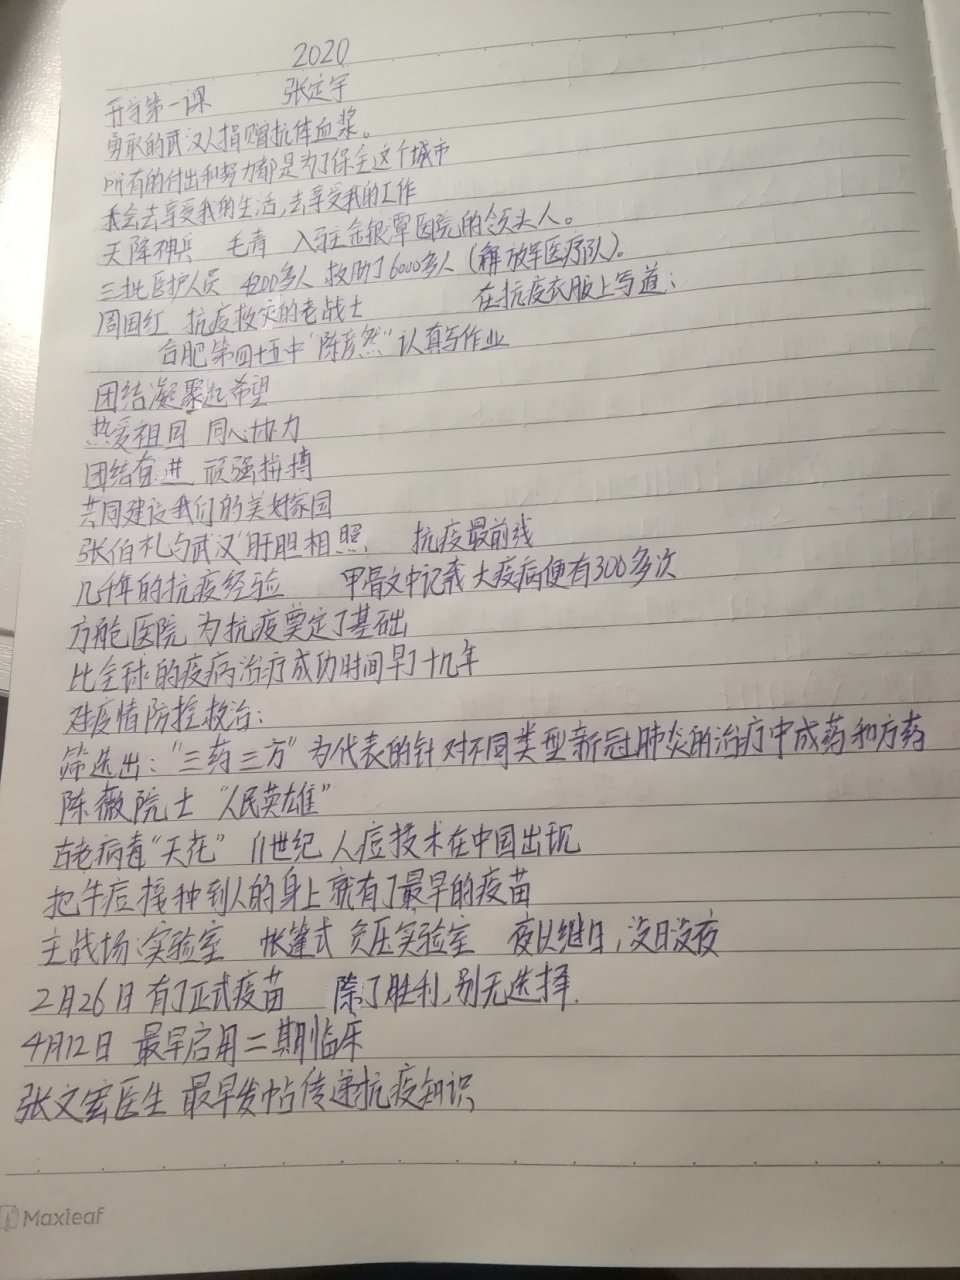 2020
开学第一课 张定宇
勇敢的武汉人捐赠抗体血浆。
所有的付出和努力都是为了保全这个城市
我会去享受我的生活,去享受我的工作
天降神兵 毛青 入驻金银潭医院的领头人。
三批医护人员 4200多人 救助了6000多人(解放军医疗队)。
周国红 抗疫救灾的老战士 在抗疫衣服上写道:
合肥第四十五中"陈彦然"认真写作业
团结凝聚起希望
热爱祖国 同心协力
团结奋进 顽强拼搏
共同建设我们的美好家园
张伯礼与武汉"肝胆相照 抗疫最前线
几千年的抗疫经验 甲骨文中记载大疫病便有300多次
方舱医院 为抗疫奠定了基础
比全球的疫病治疗成功时间早了十几年
对疫情防控救治:
筛选出:"三药三方"为代表的针对不同类型新冠肺炎的治疗中成药和方药
陈薇院士 "人民英雄"
古老病毒"天花" 11世纪 人痘技术在中国出现
把牛痘接种到人的身上就有了最早的疫苗
主战场:实验室 帐篷式 负压实验室 夜以继日,没日没夜
2月26日 有了正式疫苗 除了胜利,别无选择.
4月12日 最早启用二期临床
张文宏医生 最早发帖传递抗疫知识
Maxleaf